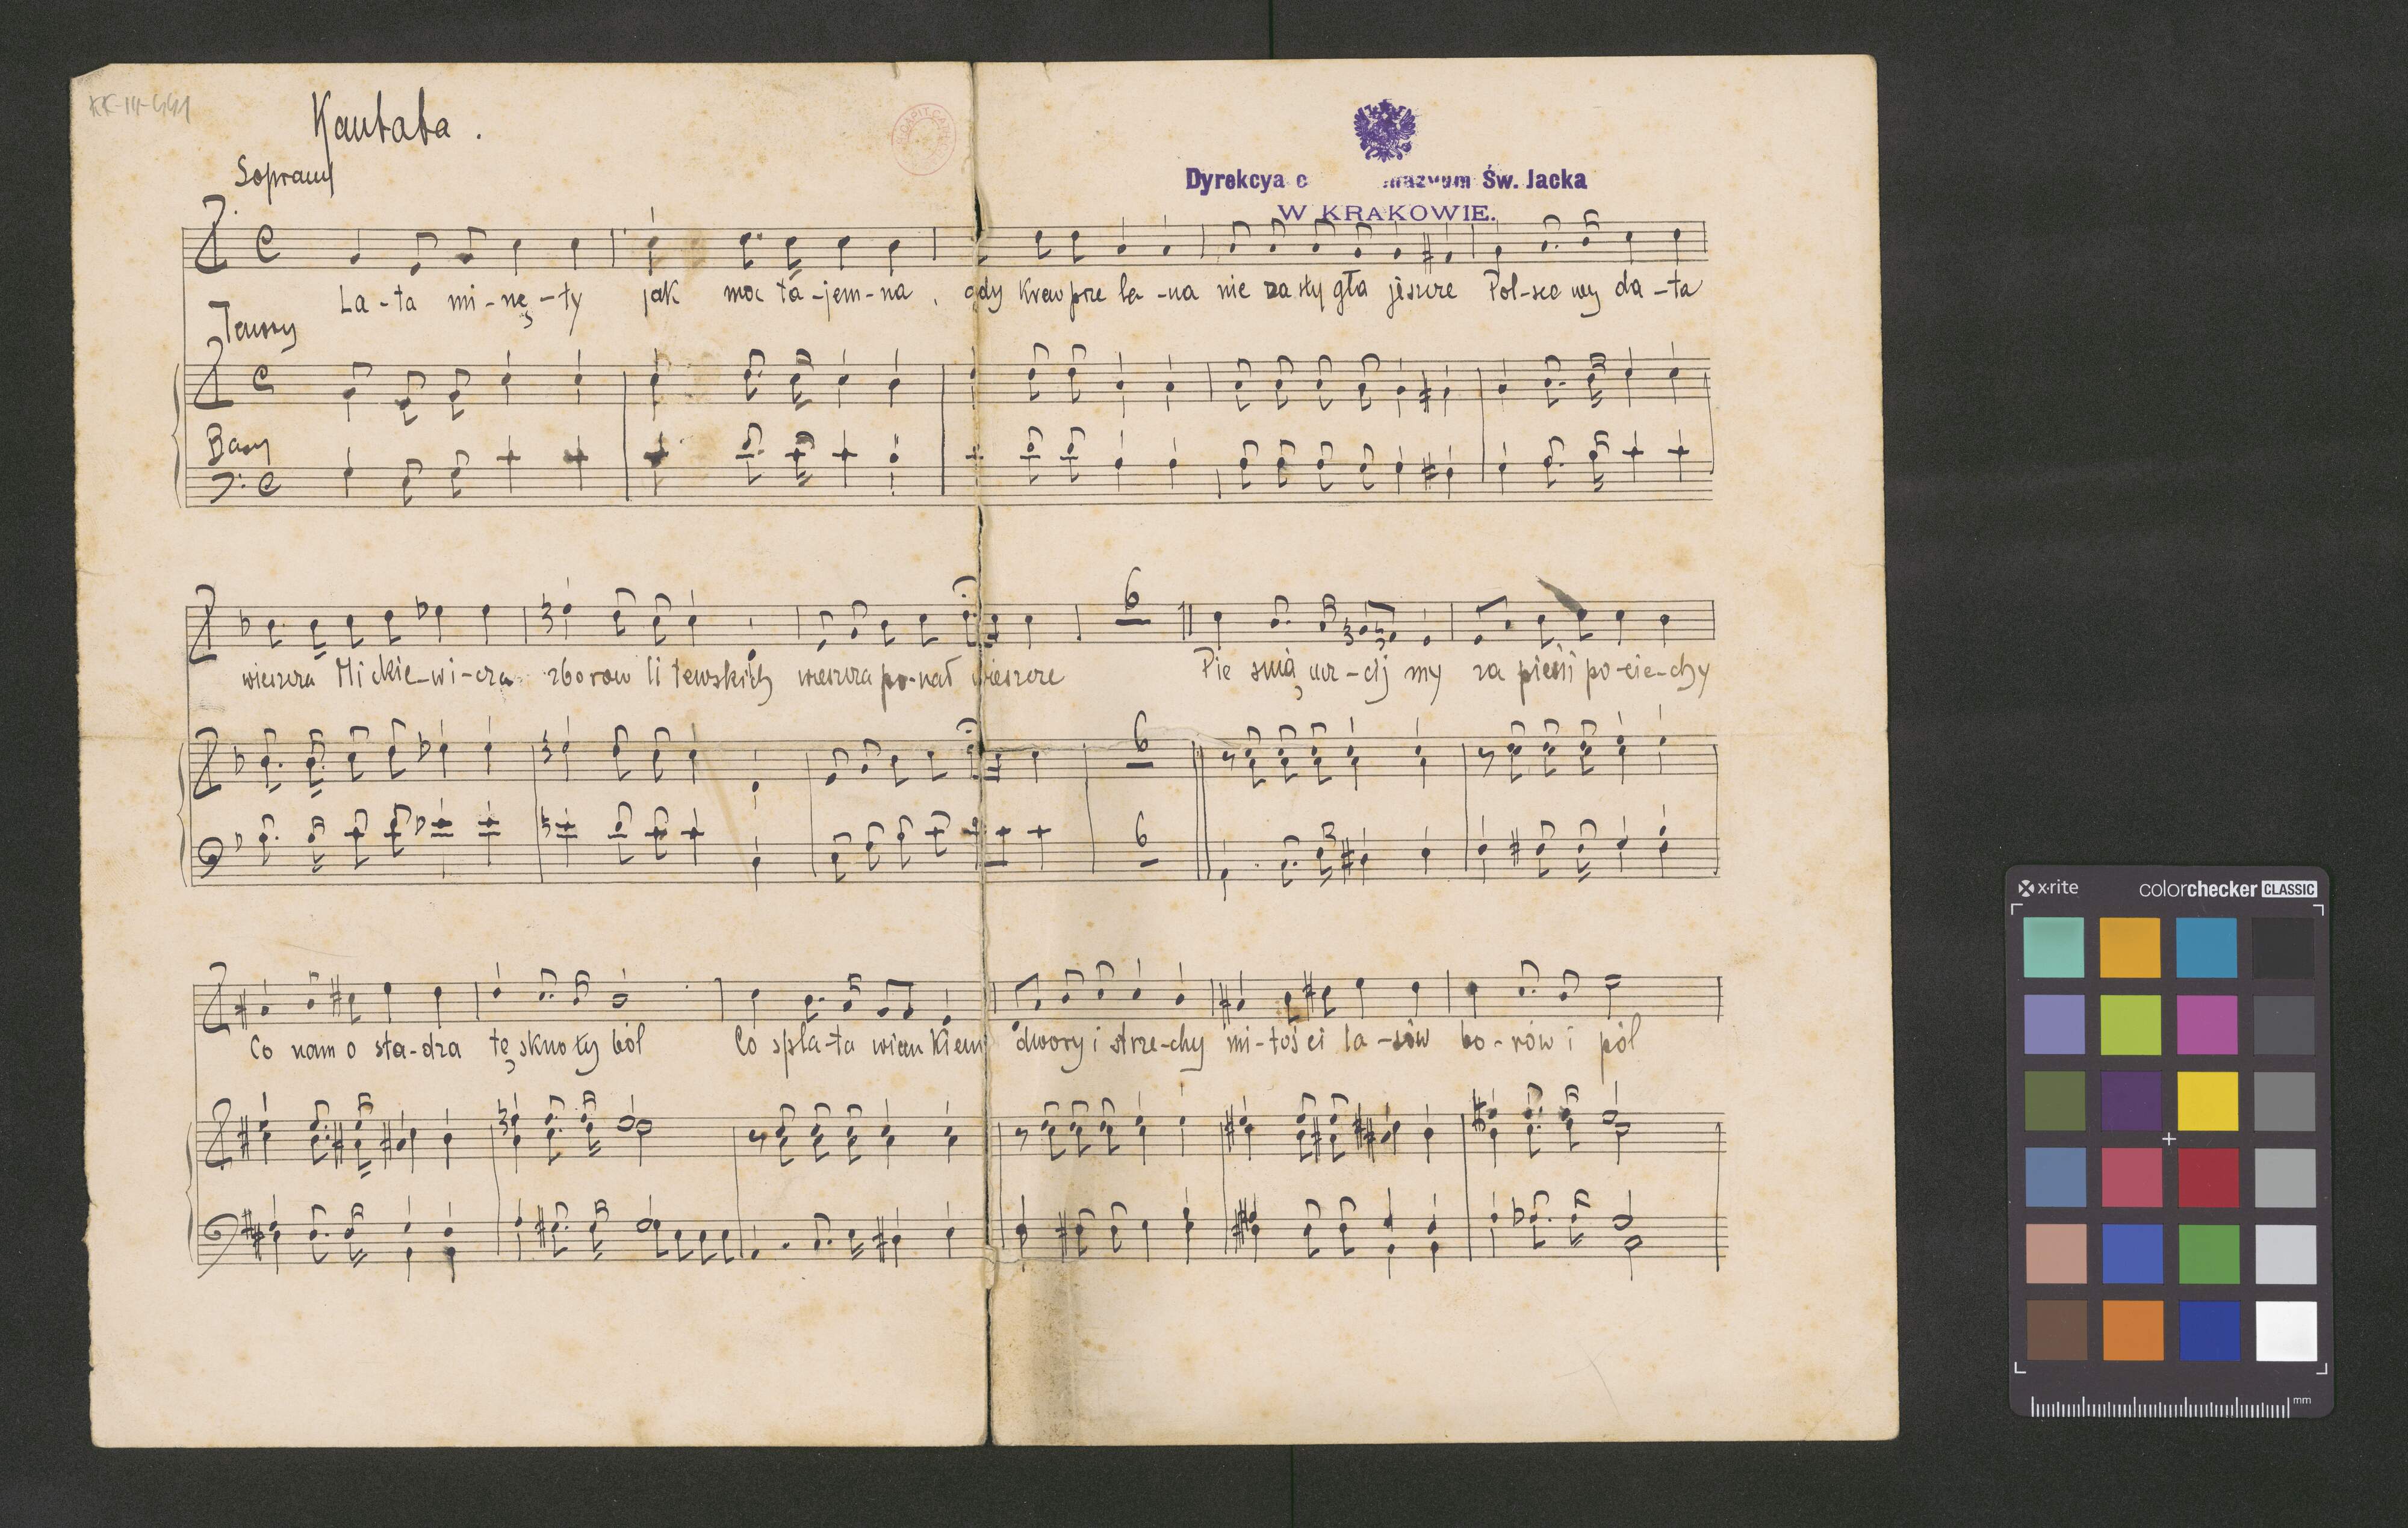 KK-14-441
Kantata.
Soprany
Dyrekcya c mnazyum Św. Jacka
W KRAKOWIE.
La-ta mi-nę-ły jak moc ta-jem-na, gdy krew prze la-na nie za sty gła jeszcze Pol-sce wy da-ta
Tenory
Basy
wieszcza Mickie-wi-cza zborow li tewskich wieszcza po-nad wieszcze
6
Pie śnią ucz-cij my za pieśń po-cie-chy
6
6
Co nam o sła-dza tę skno ty ból Co spla-ta wian kiem dwory i strze-chy mi-łoś ci la-sów bo-rów i pól
x·rite colorchecker CLASSIC
mm